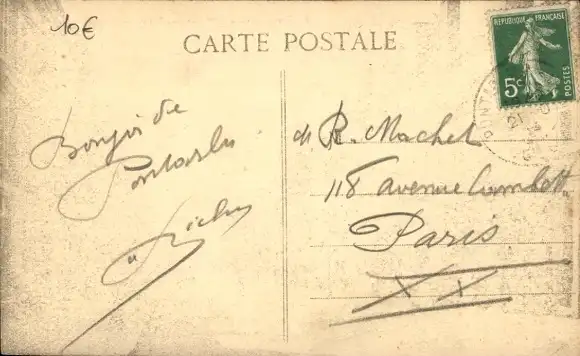 10€
CARTE POSTALE
REPUBLIQUE FRANÇAISE
5c
POSTES
Bonjour de
Pontarlier
M R. Machet
118 avenue Gambetta
Paris
XX